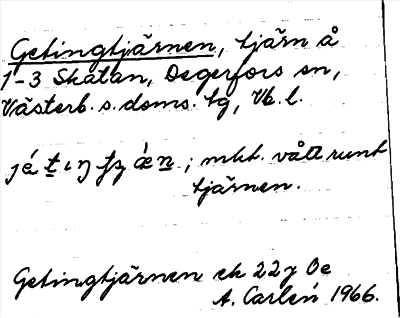 Getingtjärnen, tjärn å
1-3 Skatan, Degerfors sn,
Västerb. s. doms. tg, Vb. l.
; mkt. vått runt
tjärnen.
Getingtjärnen ek 22 7 Oe
A. Carlén 1966.